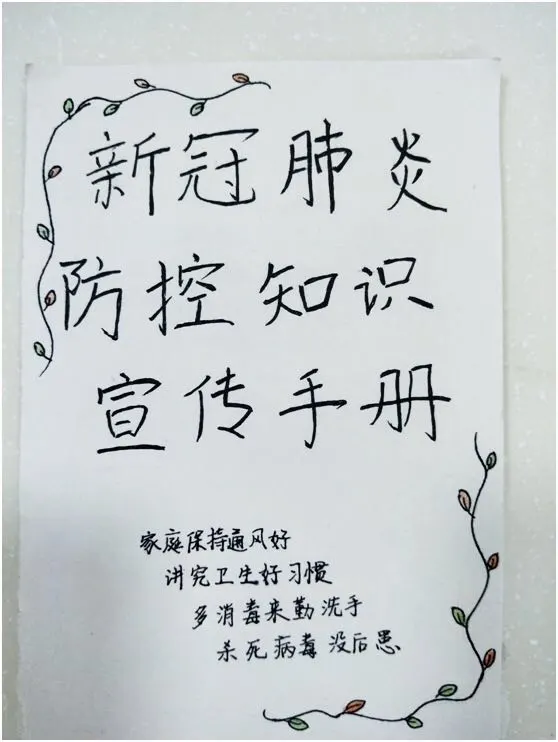 新冠肺炎
防控知识
宣传手册
家庭保持通风好
讲究卫生好习惯
多消毒来勤洗手
杀死病毒没后患